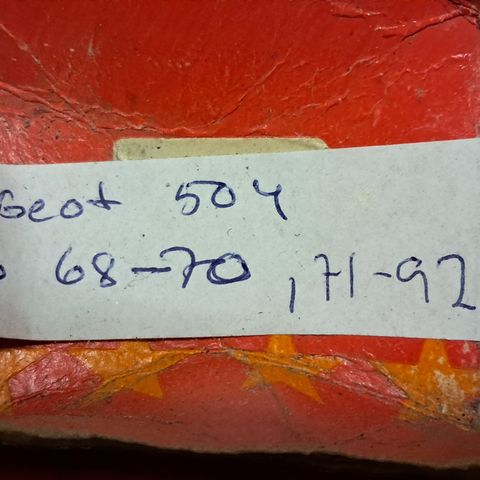 Geot 504
68-70, 71-92